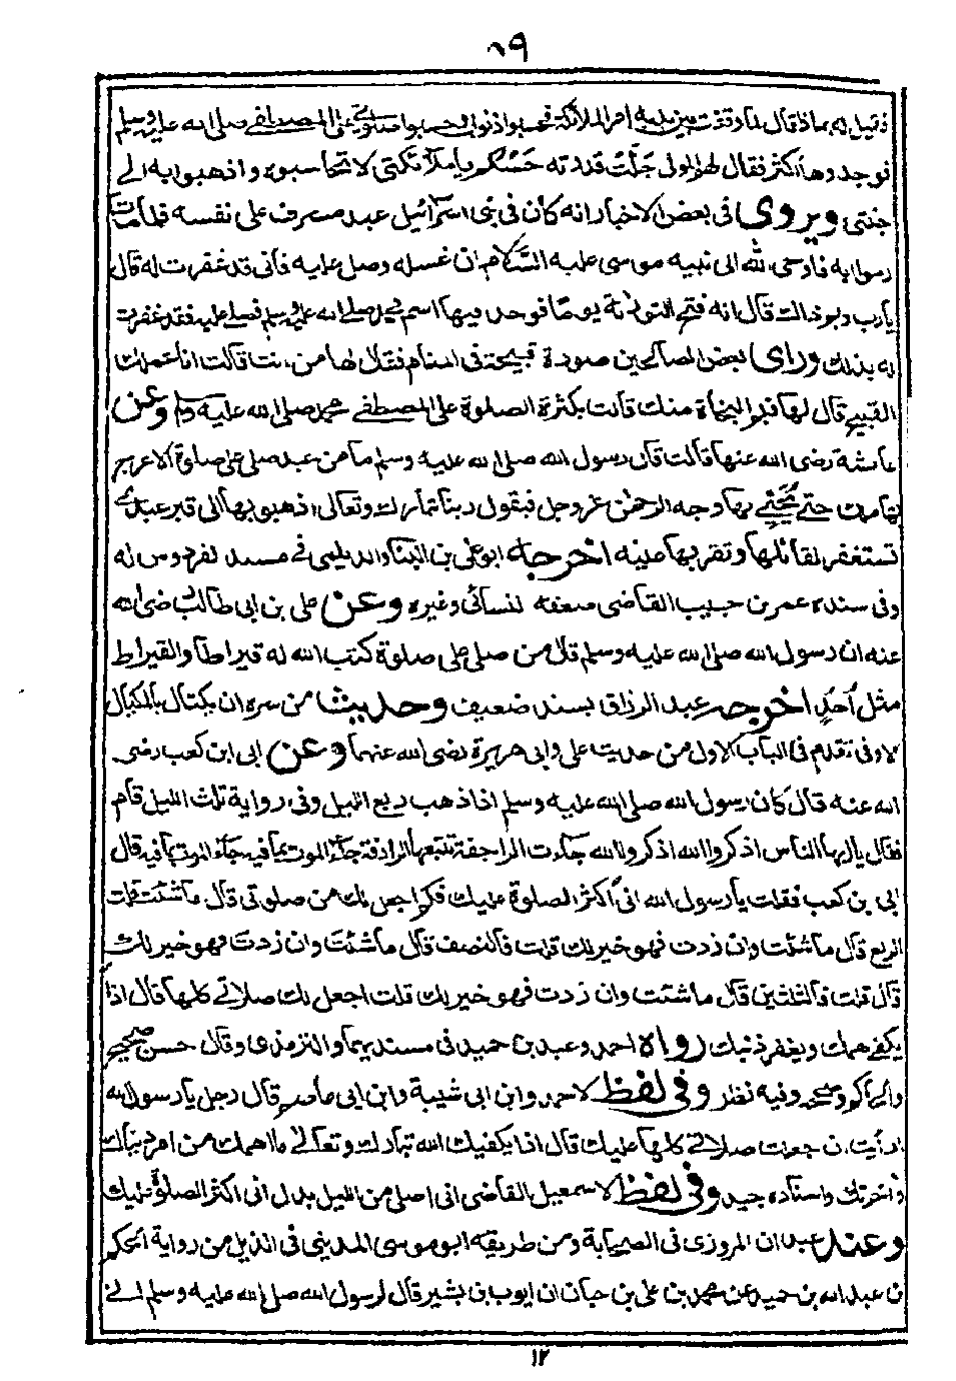 ٨٩
فقيل له بماذا قال لما وقفت بين يديه أمر الملائكة فحسبوا ذنوبي وحسبوا صلوتي على المصطفى صلى الله عليه وسلم
فوجدوها أكثر فقال لهم المولى جلت قدرته حسبكم يا ملائكتى لا تحاسبوه واذهبوا به الى
جنتى ويروى فى بعض الاخبار انه كان فى بنى اسرائيل عبد مسرف على نفسه فلما مات
رموا به فاوحى الله الى نبيه موسى عليه السلام ان غسله وصل عليه فانى قد غفرت له قال
يارب وبم ذلك قال انه فتح التوراة يوما فوجد فيها اسم محمد صلى الله عليه وسلم فصلى عليه فقد غفرت
له بذلك ورأى بعض الصالحين صورة قبيحة فى المنام فقال لها من انت قالت انا عملك
القبيح قال لها فبم النجاة منك قالت بكثرة الصلوة على المصطفى محمد صلى الله عليه وسلم وعن
عائشة رضى الله عنها قالت قال رسول الله صلى الله عليه وسلم ما من عبد صلى على صلوة الا عرج
بها ملك حتى يجئ بها وجه الرحمن عز وجل فيقول ربنا تبارك وتعالى اذهبوا بها الى قبر عبدى
تستغفر لقائلها وتقر بها عينه اخرجه ابو على بن البنا والديلمى فى مسند الفردوس له
وفى سنده عمر بن حبيب القاضى ضعفه النسائى وغيره وعن على بن ابى طالب رضى الله
عنه ان رسول الله صلى الله عليه وسلم قال من صلى على صلوة كتب الله له قيراطا والقيراط
مثل أحد اخرجه عبد الرزاق بسند ضعيف وحديث من سره ان يكتال بالمكيال
الاوفى تقدم فى الباب الاول من حديث على وابى هريرة رضى الله عنهما وعن ابى ابن كعب رضى
الله عنه قال كان رسول الله صلى الله عليه وسلم اذا ذهب ربع الليل وفى رواية ثلث الليل قام
فقال يا ايها الناس اذكروا الله اذكروا الله جاءت الراجفة تتبعها الرادفة جاء الموت بما فيه جاء الموت بما فيه قال
ابى بن كعب فقلت يا رسول الله انى أكثر الصلوة عليك فكم اجعل لك من صلوتى قال ما شئت قلت
الربع قال ما شئت وان زدت فهو خير لك قلت فالنصف قال ما شئت وان زدت فهو خير لك
قال قلت فالثلثين قال ما شئت وان زدت فهو خير لك قلت اجعل لك صلاتى كلها قال اذا
يكفى همك ويغفر ذنبك رواه احمد وعبد بن حميد فى مسنديهما والترمذى وقال حسن صحيح
والحاكم وصححه وفيه نظر وفى لفظ لاحمد وابن ابى شيبة وابن ابى عاصم قال رجل يا رسول الله
ارأيت ان جعلت صلاتى كلها عليك قال اذا يكفيك الله تبارك وتعالى ما اهمك من امر دنياك
واخرتك واسناده جيد وفى لفظ لاسمعيل القاضى انى اصلى من الليل بدل انى اكثر الصلوة عليك
وعند عبدان المروزى فى الصحابة ومن طريقه ابو موسى المدينى فى الذيل من رواية الحكم
بن عبد الله بن حميد عن محمد بن على بن حبان ان ايوب بن بشير قال لرسول الله صلى الله عليه وسلم انى
١٢